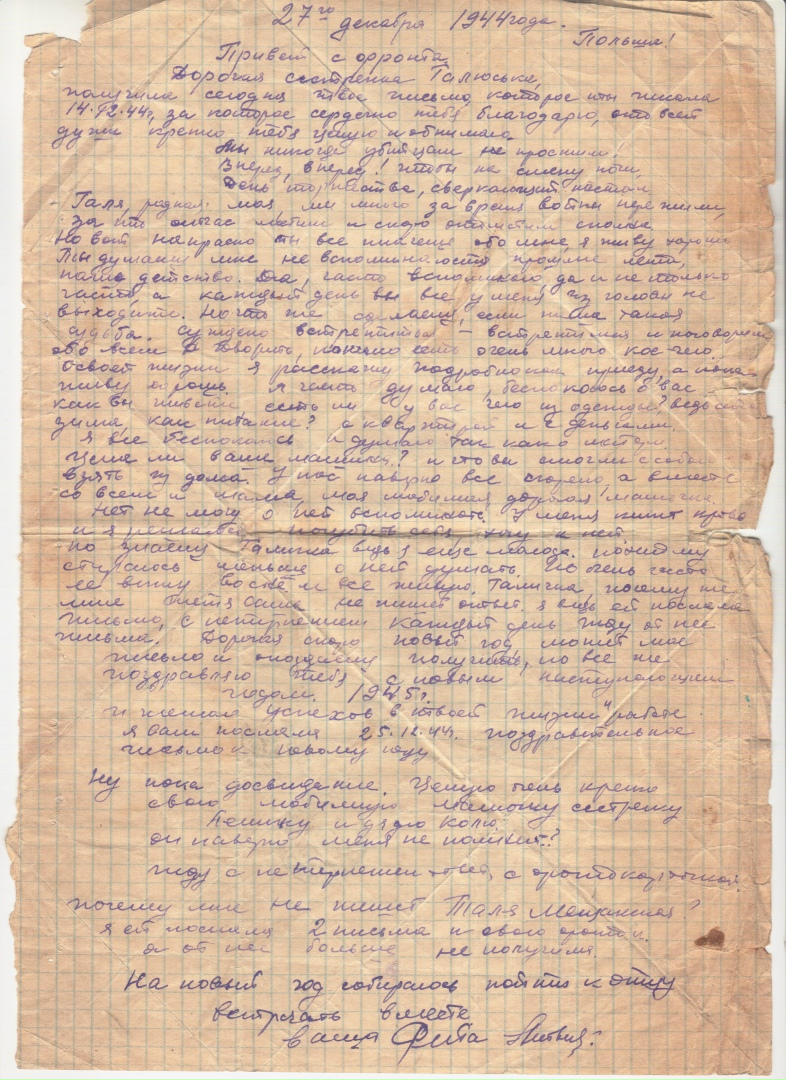 27го декабря 1944 года.
Польша!
Привет с фронта
Дорогая сестренка Галюська,
получила сегодня твое письмо, которое ты писала
14.XII.44г, за которое сердечно тебя благодарю, ото всей
души крепко тебя целую и обнимаю
Мы никогда убийцам не простим.
Вперед, вперед! чтобы на смену ночи,
День торжества, сверкающий настал
Галя, родная моя мы много за время войны пережили,
за что сейчас мстим и скоро отомстим сполна
Но вот напрасно ты все пишешь обо мне, я живу хорошо
Ты думаешь мне не вспоминаются прошлые лета,
наше детство. Да, часто вспоминаю, да и не только
часто, а каждый день вы все у меня из головы не
выходите. Но что же сделаешь, если наша такая
судьба. суждено встретиться – встретимся и поговорим
обо всем А говорить, конечно есть очень много кое-чего.
О своей жизни я расскажу подробно как приеду, а пока
живу хорошо. я часто думаю, беспокоюсь о вас
как вы живете есть ли у вас что из одежды? ведь
зима, как питание? а квартирой и с деньгами.
Я все беспокоюсь и думаю так как
Целы ли ваши и что вы смогли с собой
взять из дома. У нас наверно все сгорело, а вместе
со всем и мама, моя любимая дорогая мамочка.
Нет не могу о ней вспоминать. У меня кипит кровь
и я погубить себя, хочу к ней
но знаешь Галичка ведь я еще молода. поэтому
стараюсь меньше о ней думать. Но очень часто
ее вижу во сне и все живую. Галичка, почему же
мне тетя Саша не пишет ответ. я ведь ей послала
письмо, с нетерпением каждый день жду от нее
письма. Дорогая скоро новый год может мое
письмо и опоздаешь получить, но все же
поздравляю тебя с новым наступающим
годом. 1945г.
и желаю успехов в твоей жизни и работе.
я вам послала 25.12.44г. поздравительное
письмо к новому году
Ну пока досвидание. Целую очень крепко
свою любимую сестренку
и дядю Колю.
он наверно меня не помнит?
жду с нетерпением ответ, с фронтовой
почему мне не пишет Галя
я ей послала 2 письма и свою фото
а от нее больше не получила.
На новый год собираюсь пойти к отцу
встречать вместе
ваша